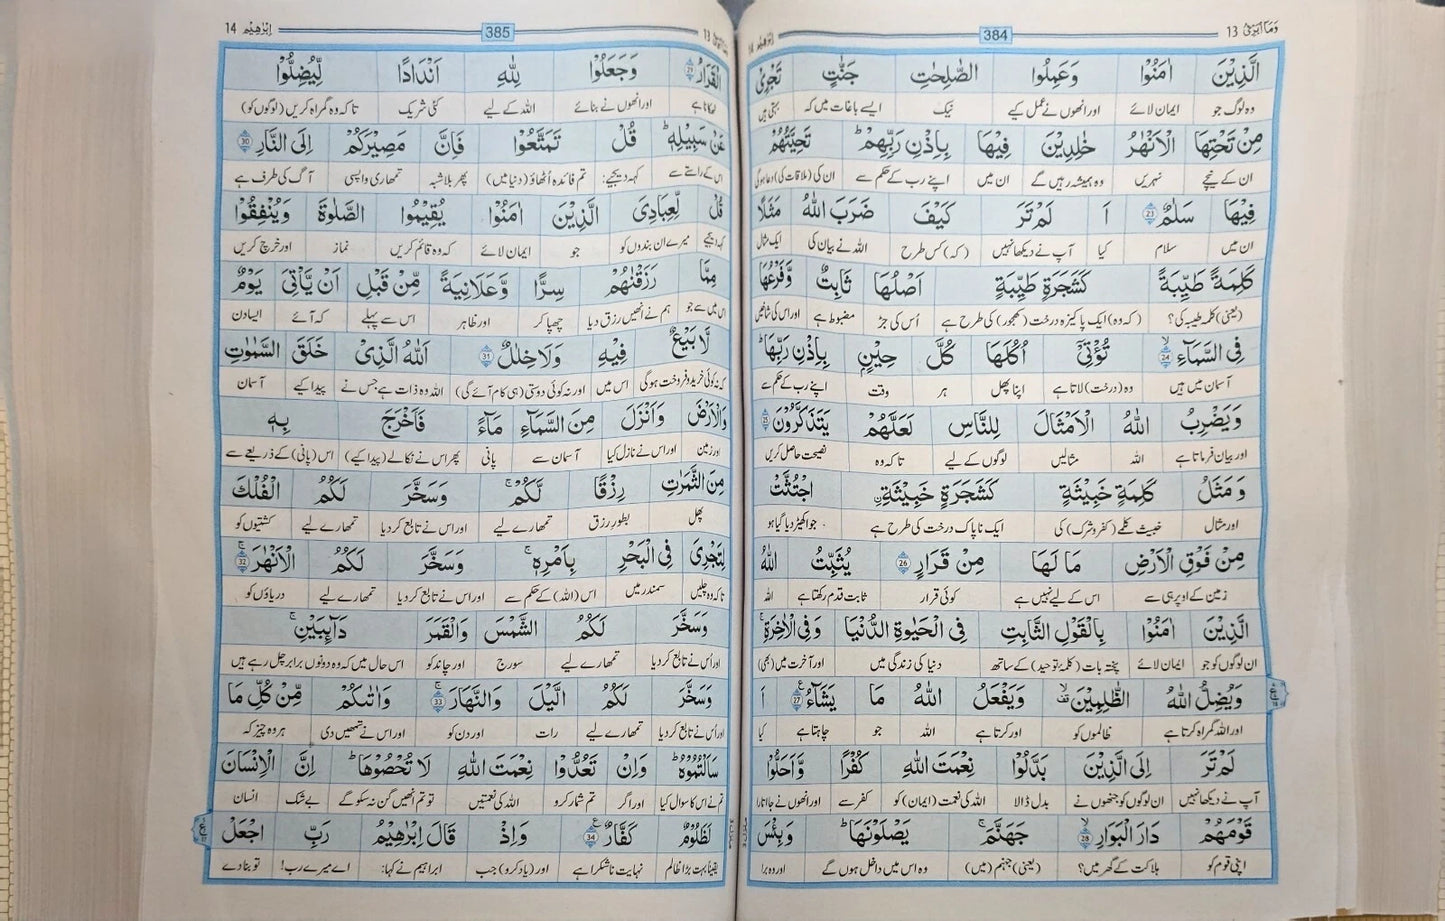 وَمَآ اُبَرِّئُ 13 384 اِبْرٰهِيْم 14
اَلَّذِيْنَ اٰمَنُوْا وَعَمِلُوا الصّٰلِحٰتِ جَنّٰتٍ تَجْرِيْ
وہ لوگ جو ایمان لائے اور انھوں نے عمل کیے نیک ایسے باغات میں کہ بہتی ہیں
مِنْ تَحْتِهَا الْاَنْهٰرُ خٰلِدِيْنَ فِيْهَا بِاِذْنِ رَبِّهِمْ ؕ تَحِيَّتُهُمْ
ان کے نیچے نہریں وہ ہمیشہ رہیں گے ان میں اپنے رب کے حکم سے ان کی (ملاقات کی) دعا ہوگی
فِيْهَا سَلٰمٌ 23 اَ لَمْ تَرَ كَيْفَ ضَرَبَ اللّٰهُ مَثَلًا
ان میں سلام کیا آپ نے دیکھا نہیں (کہ) کس طرح اللہ نے بیان کی ایک مثال
كَلِمَةً طَيِّبَةً كَشَجَرَةٍ طَيِّبَةٍ اَصْلُهَا ثَابِتٌ وَّفَرْعُهَا
(یعنی) کلمہ طیبہ کی؟ (کہ وہ) ایک پاکیزہ درخت (کھجور) کی طرح ہے اُس کی جڑ مضبوط ہے اور اس کی شاخیں
فِي السَّمَآءِ 24 تُؤْتِيْٓ اُكُلَهَا كُلَّ حِيْنٍۭ بِاِذْنِ رَبِّهَا ؕ
آسمان میں ہیں وہ (درخت) لاتا ہے اپنا پھل ہر وقت اپنے رب کے حکم سے
وَيَضْرِبُ اللّٰهُ الْاَمْثَالَ لِلنَّاسِ لَعَلَّهُمْ يَتَذَكَّرُوْنَ 25
اور بیان فرماتا ہے اللہ مثالیں لوگوں کے لیے تاکہ وہ نصیحت حاصل کریں
وَمَثَلُ كَلِمَةٍ خَبِيْثَةٍ كَشَجَرَةٍ خَبِيْثَةِ اِۨجْتُثَّتْ
اور مثال خبیث کلمے (کفر و شرک) کی ایک ناپاک درخت کی طرح ہے جو اکھیڑ دیا گیا ہو
مِنْ فَوْقِ الْاَرْضِ مَا لَهَا مِنْ قَرَارٍ 26 يُثَبِّتُ اللّٰهُ
زمین کے اوپر ہی سے اس کے لیے نہیں ہے کوئی قرار ثابت قدم رکھتا ہے اللہ
الَّذِيْنَ اٰمَنُوْا بِالْقَوْلِ الثَّابِتِ فِي الْحَيٰوةِ الدُّنْيَا وَفِي الْاٰخِرَةِ ۚ
ان لوگوں کو جو ایمان لائے پختہ بات (کلمۂ توحید) کے ساتھ دنیا کی زندگی میں اور آخرت میں (بھی)
وَيُضِلُّ اللّٰهُ الظّٰلِمِيْنَ ۙ وَيَفْعَلُ اللّٰهُ مَا يَشَآءُ 27 اَ
اور اللہ گمراہ کرتا ہے ظالموں کو اور کرتا ہے اللہ جو چاہتا ہے کیا
لَمْ تَرَ اِلَى الَّذِيْنَ بَدَّلُوْا نِعْمَتَ اللّٰهِ كُفْرًا وَّاَحَلُّوْا
آپ نے دیکھا نہیں ان لوگوں کو جنھوں نے بدل ڈالا اللہ کی نعمت (ایمان) کو کفر سے اور انھوں نے جا اتارا
قَوْمَهُمْ دَارَ الْبَوَارِ 28 جَهَنَّمَ ۚ يَصْلَوْنَهَا ؕ وَبِئْسَ
اپنی قوم کو ہلاکت کے گھر میں؟ (یعنی) جہنم (میں) وہ اس میں داخل ہوں گے اور وہ برا
13 385 اِبْرٰهِيْم 14
الْقَرَارُ 29 وَجَعَلُوْا لِلّٰهِ اَنْدَادًا لِّيُضِلُّوْا
ٹھکانا ہے اور انھوں نے بنائے اللہ کے لیے کئی شریک تاکہ وہ گمراہ کریں (لوگوں کو)
عَنْ سَبِيْلِهٖ ؕ قُلْ تَمَتَّعُوْا فَاِنَّ مَصِيْرَكُمْ اِلَى النَّارِ 30
اس کے راستے سے کہہ دیجیے: تم فائدہ اُٹھاؤ (دنیا میں) پھر بلاشبہ تمھاری واپسی آگ کی طرف ہے
قُلْ لِّعِبَادِيَ الَّذِيْنَ اٰمَنُوْا يُقِيْمُوا الصَّلٰوةَ وَيُنْفِقُوْا
کہہ دیجیے میرے ان بندوں کو جو ایمان لائے کہ وہ قائم کریں نماز اور خرچ کریں
مِمَّا رَزَقْنٰهُمْ سِرًّا وَّعَلَانِيَةً مِّنْ قَبْلِ اَنْ يَّاْتِيَ يَوْمٌ
اس میں سے جو ہم نے انھیں رزق دیا چھپا کر اور ظاہر اس سے پہلے کہ آئے ایسا دن
لَّا بَيْعٌ فِيْهِ وَلَا خِلٰلٌ 31 اَللّٰهُ الَّذِيْ خَلَقَ السَّمٰوٰتِ
کہ نہ کوئی خرید و فروخت ہوگی اس میں اور نہ کوئی دوستی (ہی کام آئے گی) اللہ وہ ذات ہے جس نے پیدا کیے آسمان
وَالْاَرْضَ وَاَنْزَلَ مِنَ السَّمَآءِ مَآءً فَاَخْرَجَ بِهٖ
اور زمین اور اس نے نازل کیا آسمان سے پانی پھر اس نے نکالے (پیدا کیے) اس (پانی) کے ذریعے سے
مِنَ الثَّمَرٰتِ رِزْقًا لَّكُمْ ۚ وَسَخَّرَ لَكُمُ الْفُلْكَ
پھل بطور رزق تمھارے لیے اور اس نے تابع کر دیا تمھارے لیے کشتیوں کو
لِتَجْرِيَ فِي الْبَحْرِ بِاَمْرِهٖ ۚ وَسَخَّرَ لَكُمُ الْاَنْهٰرَ 32
تاکہ وہ چلیں سمندر میں اس (اللہ) کے حکم سے اور اس نے تابع کر دیا تمھارے لیے دریاؤں کو
وَسَخَّرَ لَكُمُ الشَّمْسَ وَالْقَمَرَ دَآىِٕبَيْنِ ۚ
اور اُس نے تابع کر دیا تمھارے لیے سورج اور چاند کو اس حال میں کہ وہ دونوں برابر چل رہے ہیں
وَسَخَّرَ لَكُمُ الَّيْلَ وَالنَّهَارَ 33 وَاٰتٰىكُمْ مِّنْ كُلِّ مَا
اور اُس نے تابع کر دیا تمھارے لیے رات اور دن کو اور اس نے تمھیں دی ہر وہ چیز کہ
سَاَلْتُمُوْهُ ؕ وَاِنْ تَعُدُّوْا نِعْمَتَ اللّٰهِ لَا تُحْصُوْهَا ؕ اِنَّ الْاِنْسَانَ
تم نے اس کا سوال کیا اور اگر تم شمار کرو اللہ کی نعمتیں تو تم انھیں گن نہ سکو گے بے شک انسان
لَظَلُوْمٌ كَفَّارٌ 34 وَاِذْ قَالَ اِبْرٰهِيْمُ رَبِّ اجْعَلْ
یقیناً بہت بڑا ظالم نہایت ناشکرا ہے اور (یاد کرو) جب ابراہیم نے کہا: اے میرے رب! تو بنا دے